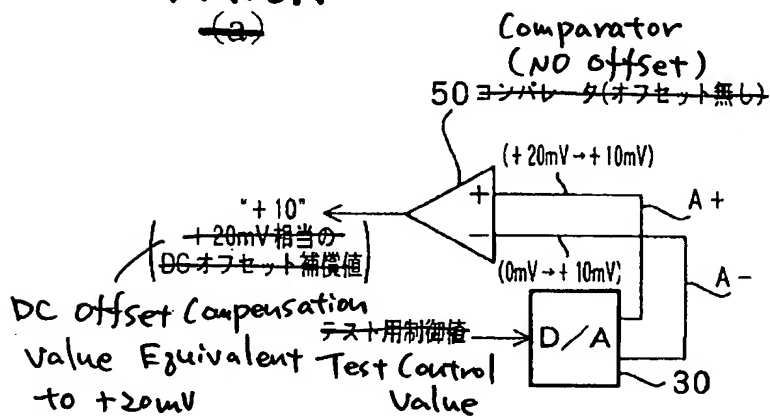 (a)
Comparator
(NO offset)
50 コンパレータ(オフセット無し)
(+20mV→+10mV)
+
A+
"+10"
+20mV相当の
DCオフセット補償値
−
(0mV→+10mV)
A−
DC Offset Compensation
Value Equivalent
to +20mV
テスト用制御値
Test Control
Value
D/A
30